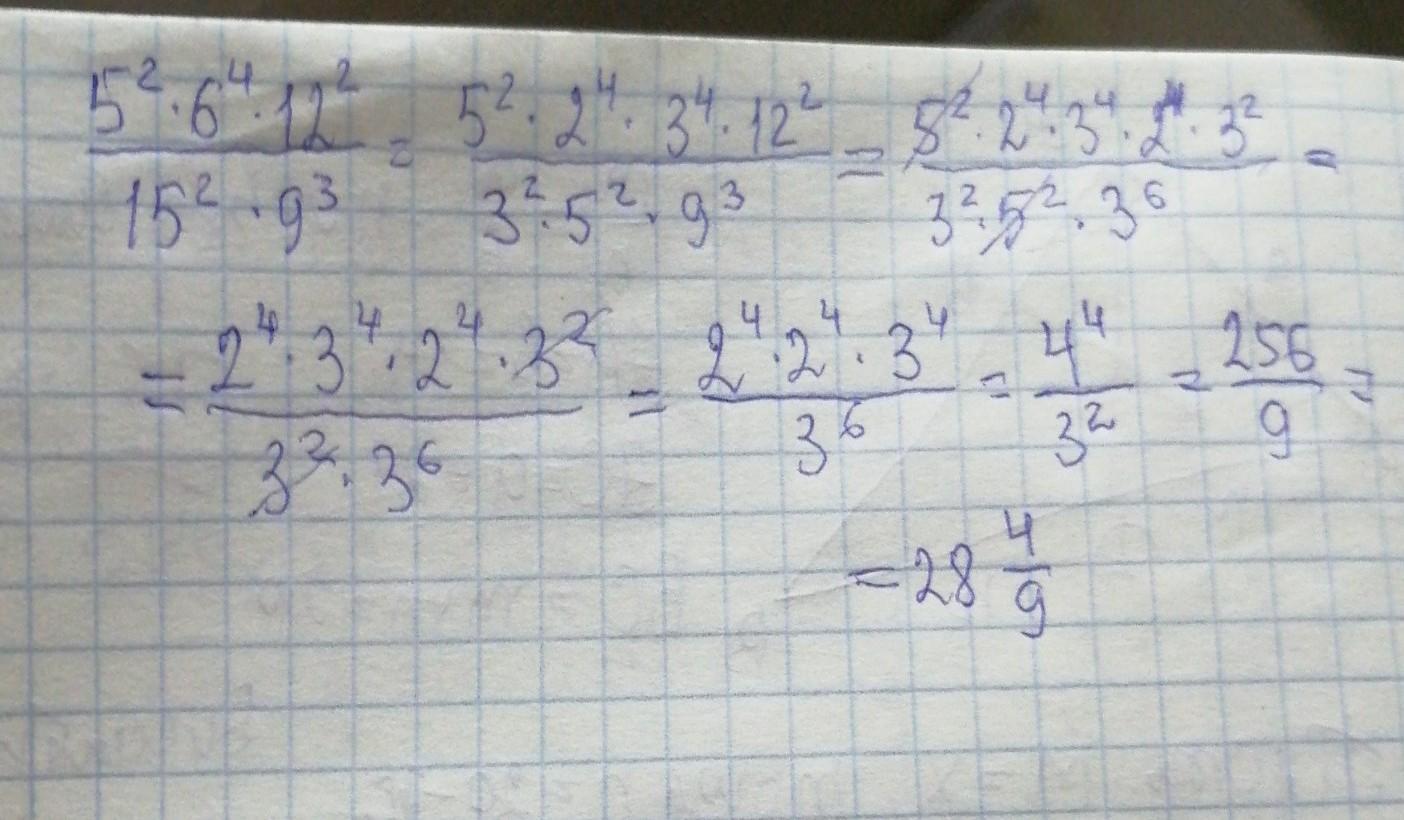 5² · 6⁴ · 12² / 15² · 9³ = 5² · 2⁴ · 3⁴ · 12² / 3² · 5² · 9³ = 5² · 2⁴ · 3⁴ · 2⁴ · 3² / 3² · 5² · 3⁶ =
= 2⁴ · 3⁴ · 2⁴ · 3² / 3² · 3⁶ = 2⁴ · 2⁴ · 3⁴ / 3⁶ = 4⁴ / 3² = 256 / 9 =
= 28 4/9